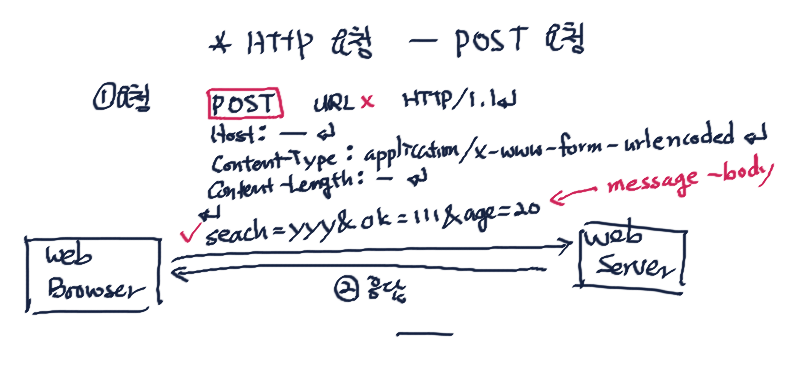 * HTTP 요청 — POST 요청
① 요청 POST URL x HTTP/1.1↵
Host: — ↵
Content-Type : application/x-www-form-urlencoded ↵
Content-Length: — ↵
↵
✓ seach=yyy&ok=111&age=20 ← message-body
Web Browser
Web Server
② 응답